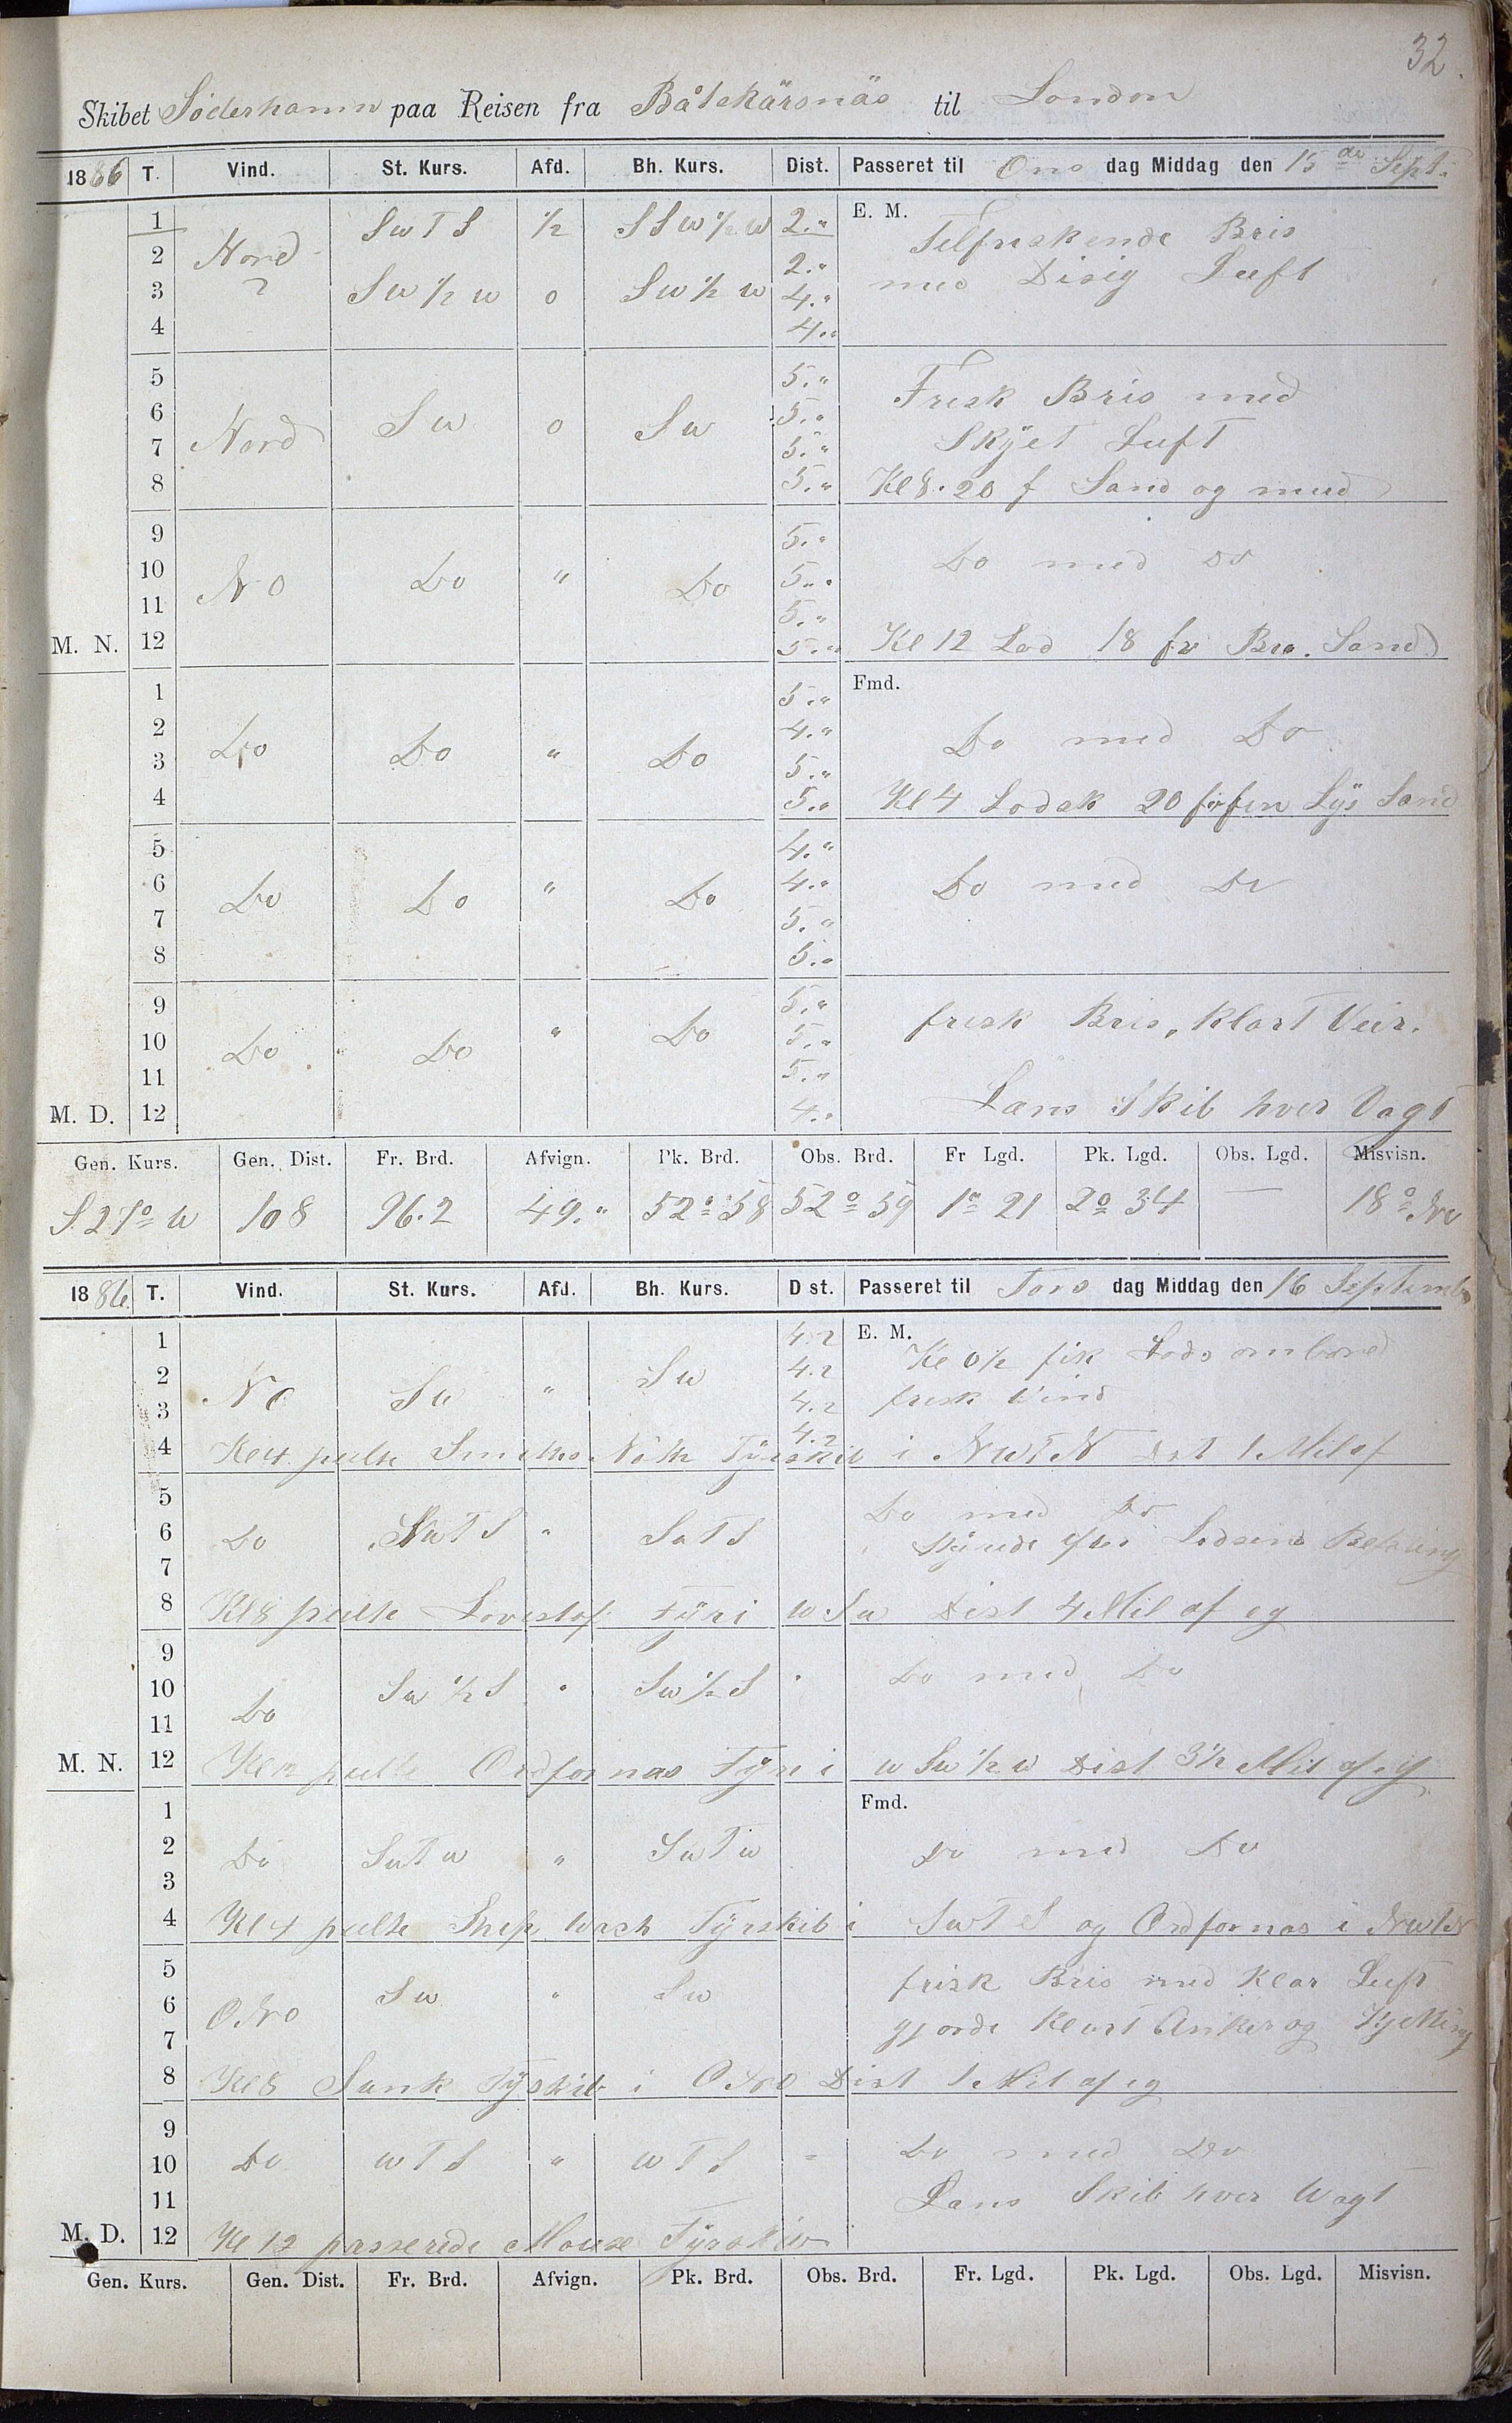 32.
Skibet Söderhamn paa Reisen fra Båtskärsnäs til London
1886 T. Vind. St. Kurs. Afd. Bh. Kurs. Dist. Passeret til Ons dag Middag den 15de Sept.
E. M.
1 SWTS ½ SSW½W 2."
2 Nord 2." med Disig Luft
3 SW½W 0 SW½W 4."
4 4."
5 5." Frisk Bris med
6 SW 0 SW 5."
7 Nord 5." Skÿet Luft
8 5." Kl 8. 20 f Sand og mud
9 5."
10 NO Do " Do 5." Do med Do
11 5."
M. N. 12 5." Kl 12 Lod 18 fv Sand
Fmd.
1 5."
2 Do Do " Do 4." Do med Do
3 5."
4 5." Kl 4 20 Lÿs Sand
5 4."
6 Do Do " Do 4." Do med Do
7 5."
8 5."
9 5." frisk Bris, Klart Veir.
10 Do Do " Do 5."
11 5."
M. D. 12 4." Læns Skib hver Vagt
Gen. Kurs. Gen. Dist. Fr. Brd. Afvign. Pk. Brd. Obs. Brd. Fr Lgd. Pk. Lgd. Obs. Lgd. Misvisn.
S 27° W 108 96.2 49." 52° 58 52° 59 1° 21 2° 34 — 18° NW
1886. T. Vind. St. Kurs. Afd. Bh. Kurs. Dst. Passeret til Tors dag Middag den 16 September
E. M.
1 4.2 Kl 0½ fik Lods ombord
2 NO SW " SW 4.2
3 4.2 frisk Vind
4 4.2 Kl 4 peilte Fÿrskib i NWTN Dst 1 Mil af
5 Do med Do
6 Do SWTS " SWTS Lodsens
7
8 Kl 8 peilte Lovestof Fÿr i WSW Dist 4 Mil af eg
9
10 Do SW½S " SW½S " Do med Do
11
M. N. 12 Kl 12 peilte Ordfornas Fÿr i WSW½W Dist 3½ Mil af eg
Fmd.
1
2 Do SWTW " SWTW Do med Do
3
4 Kl 4 peilte Fÿrskib i SWTS og Ordfornas i NWTN
5 frisk Bris med Klar Luft
6 ONO SW " SW
7 gjorde Klart Anker og Kjetting
8 Kl 8 Sunk Fÿskib i ONO Dist 1 Mil af eg
9
10 Do WTS " WTS " Do med Do
11 Læns Skib hver Wagt
M. D. 12 Kl 12 passerede Mouse Fÿrskib
Gen. Kurs. Gen. Dist. Fr. Brd. Afvign. Pk. Brd. Obs. Brd. Fr. Lgd. Pk. Lgd. Obs. Lgd. Misvisn.